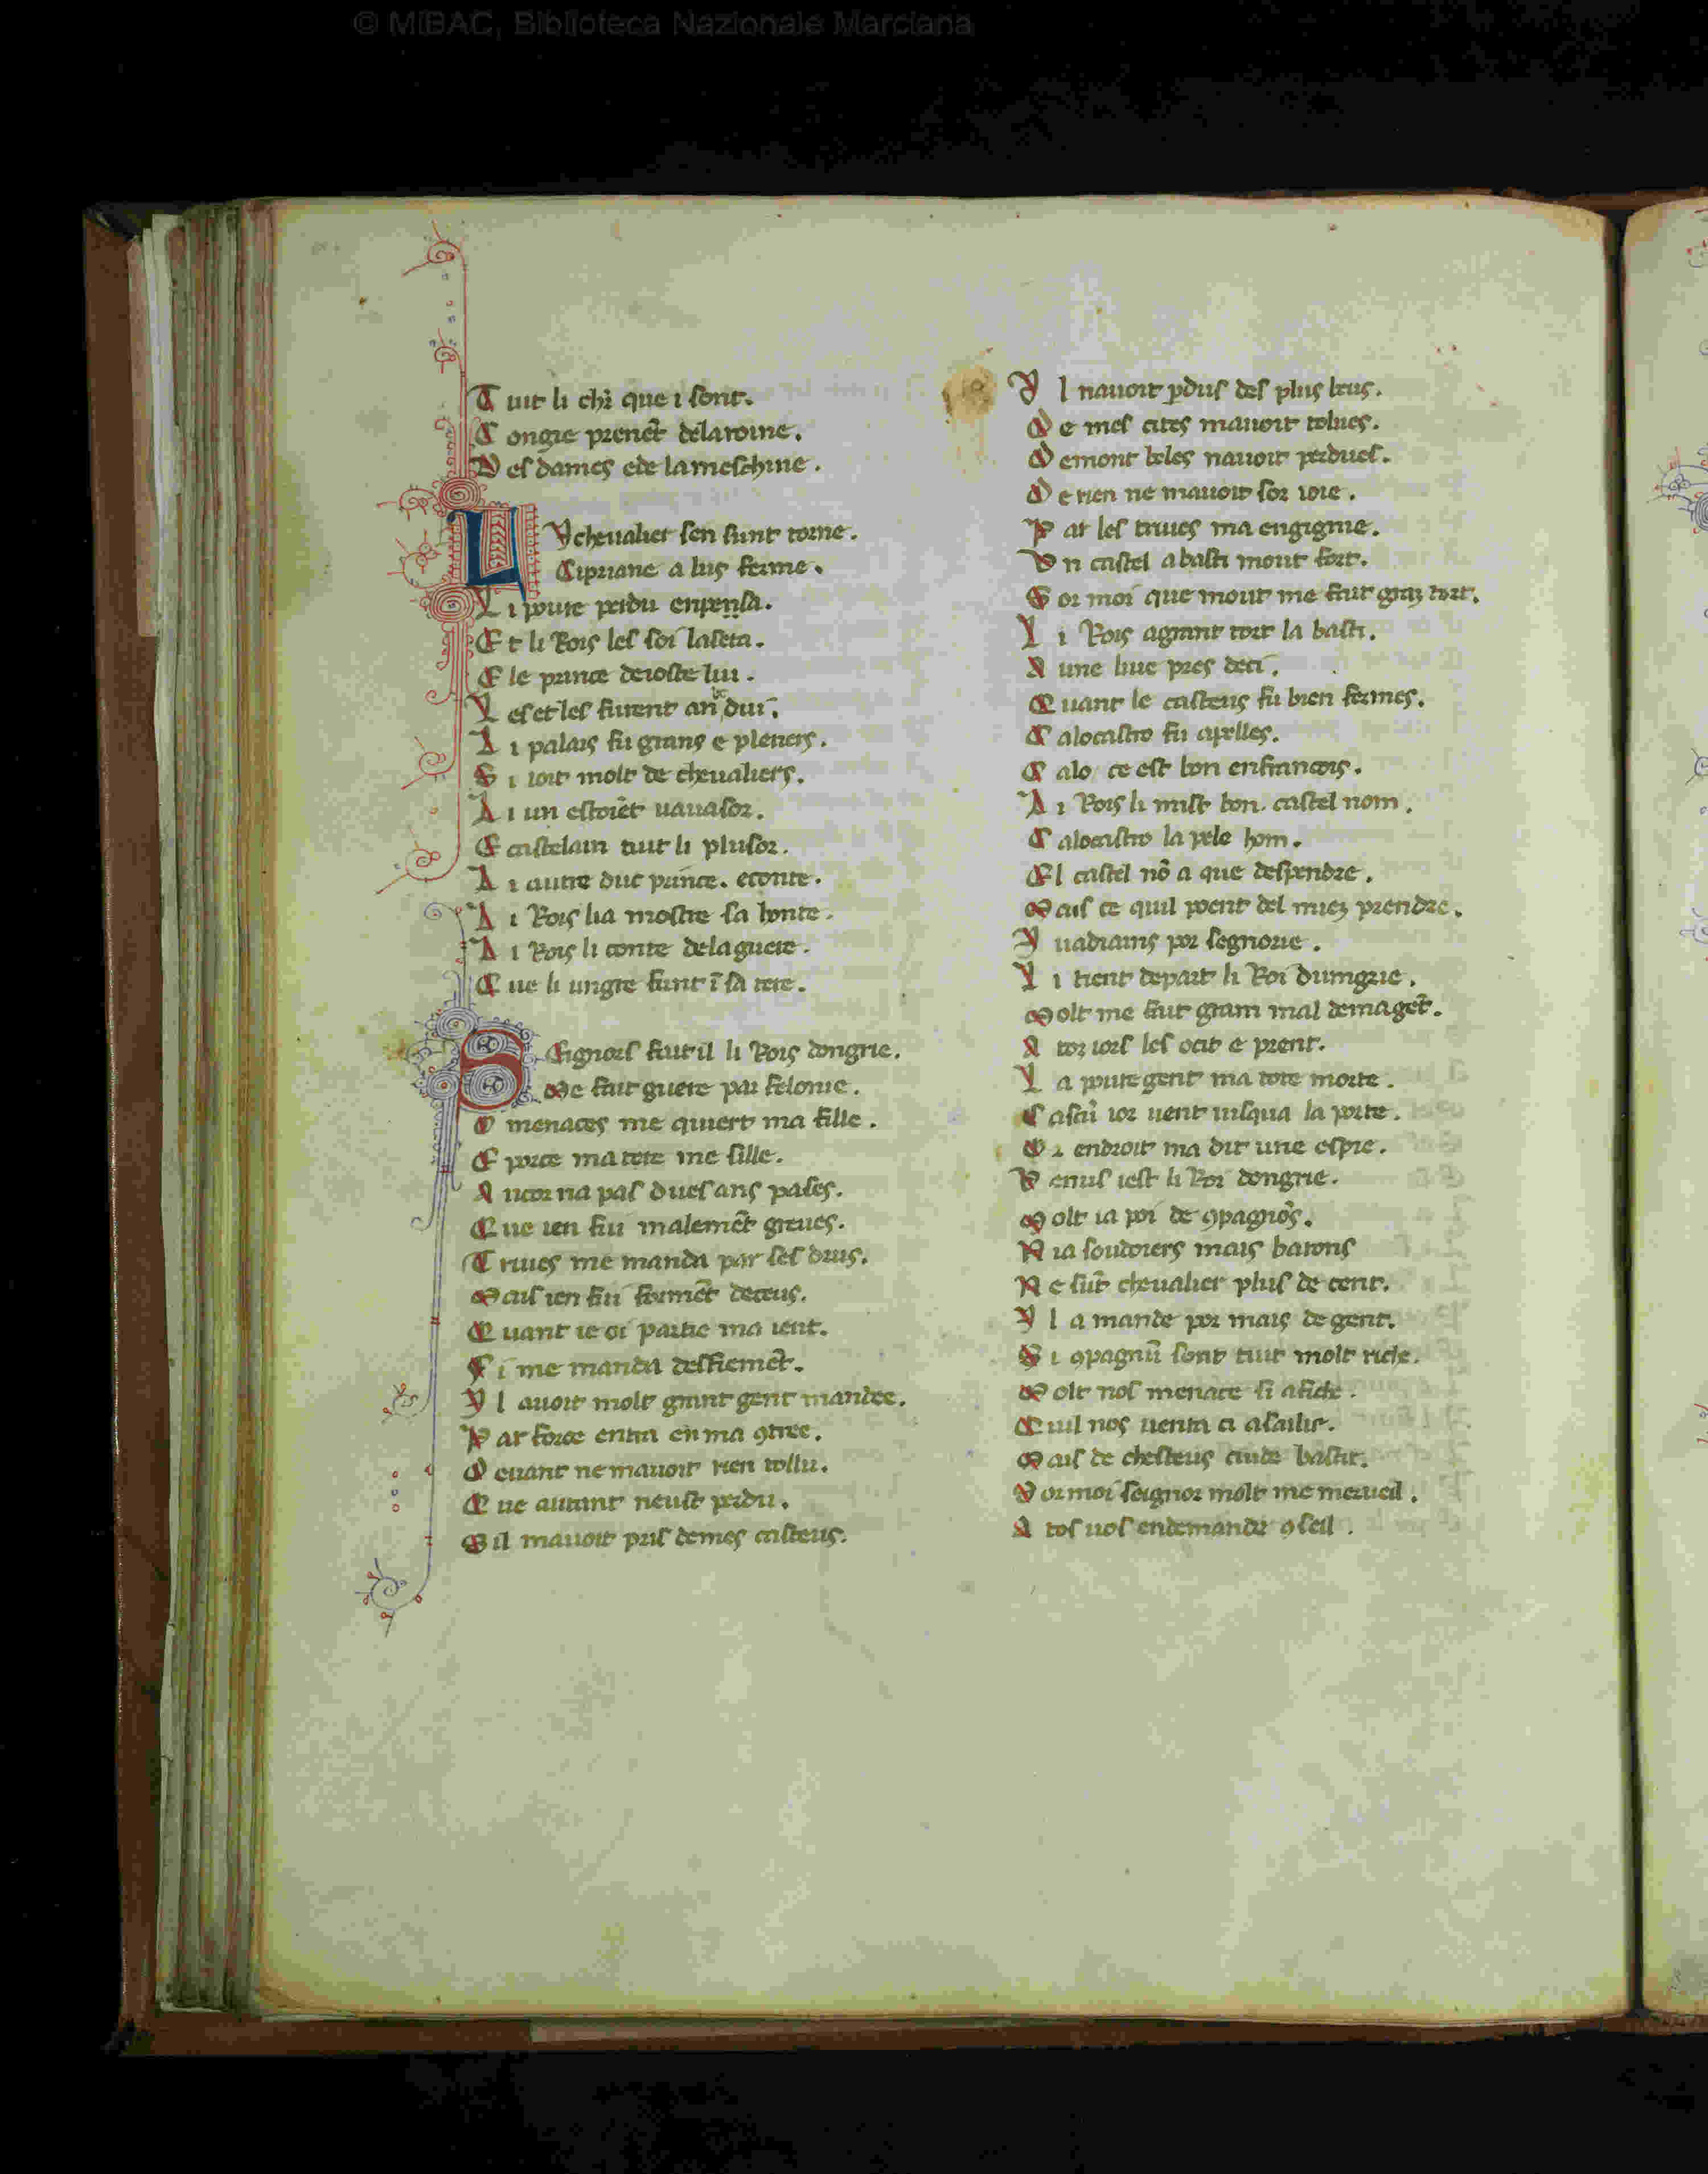 © MiBAC, Biblioteca Nazionale Marciana
T uit li chr̄ que i sont.
C ongie prenēt delaroine.
D es dames ede lameschine.
L Y cheualier sen sunt torne.
Cipriane a lus ferme.
L i porte perdu enpensa.
E t li Rois les soi laseta.
E le prince deioste lui.
L es et les furent an be dui.
L i palais fu grans e pleners.
S i ioit molt de cheualiers.
L i un estoiēt uauasor.
E castelain tuit li plusor.
L i autre duc prince. econte.
L i Rois lia mostre sa honte.
L i Rois li conte delaguere.
Q ue li ungre funt ī sa tere.
S Eignors fait il li Rois dongrie.
Me fait guere par felonie.
O menaces me quiert ma fille.
E porce ma tere me sille.
A ncor na pas dues ans pases.
Q ue ien fui malemēt greues.
T riues me manda par ses drus.
M ais ien fui formēt deceus.
Q uant ie oi partie ma ient.
S i me manda desfiemēt.
Y l auoit molt grant gent mandee.
P ar force entra en ma ꝯtree.
D euant ne mauoit rien tollu.
Q ue autant neust perdu.
S il mauoit pris demes casteus.
Y l nauoit ꝑdus des plus beus.
D e mes cites mauoit tolues.
D emont beles nauoit perdues.
D e rien ne mauoit sor ioie.
P ar les triues ma engignie.
U n castel a basti mout fort.
S or moi que mout me fait graz tort.
L i Rois agrant tort la basti.
A une liue pres deci.
Q uant le casteus fu bien fermes.
C alocastro fu apelles.
C alo ce est bon enfrancois.
L i Rois li mist bon. castel nom.
C alocastro la pele hom.
E l castel nō a que despendre.
M ais ce quil poent del miez prendre.
Y uadrains por segnorie.
L i tient depart li Roi dumgrie.
M olt me fait gram mal demagēt.
A toz iors les ocit e prent.
L a poure gent ma tote morte.
C ascū ior uent iusqua la porte.
O r endroit ma dit une espie.
V enus iest li Roi dongrie.
M olt ia poi de ꝯpagnōs.
N ia soudoiers mais barons
N e sūt cheualier plus de cent.
Y l a mande por mais de gent.
S i ꝯpagnū sont tuit molt riche.
M olt nos menace si afiche.
Q uil nos uenra ci asailir.
M ais de chesteus cuide bastir.
D ormoi seignor molt me merueil.
A tos uos endemande ꝯseil.